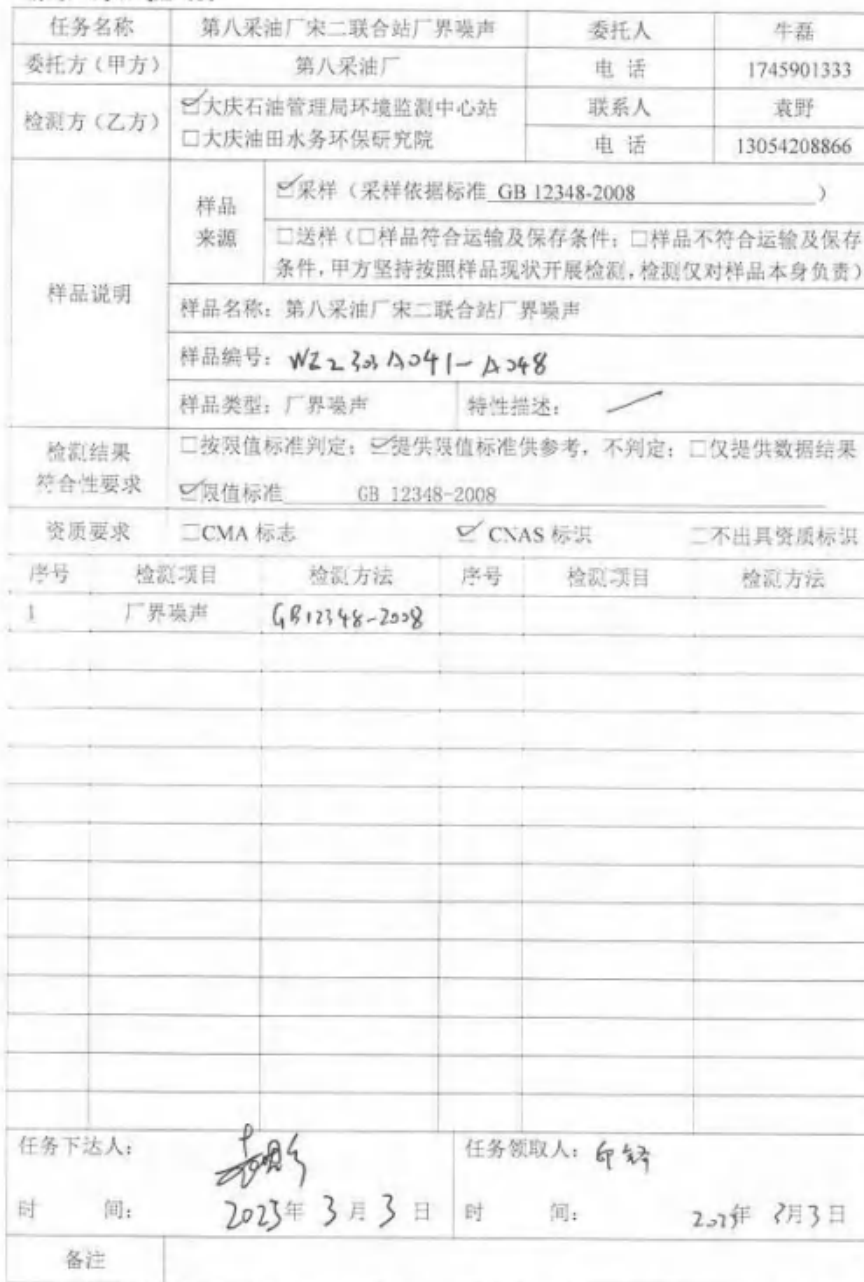 任务名称 第八采油厂宋二联合站厂界噪声 委托人 牛磊
委托方（甲方） 第八采油厂 电 话 1745901333
检测方（乙方） ☑大庆石油管理局环境监测中心站 联系人 袁野
□大庆油田水务环保研究院 电 话 13054208866
样品说明
样品来源
☑采样（采样依据标准 GB 12348-2008 ）
□送样（□样品符合运输及保存条件；□样品不符合运输及保存
条件，甲方坚持按照样品现状开展检测，检测仅对样品本身负责）
样品名称：第八采油厂宋二联合站厂界噪声
样品编号：WZ2303A041-A048
样品类型：厂界噪声 特性描述：
检测结果
符合性要求
□按限值标准判定；☑提供限值标准供参考，不判定；□仅提供数据结果
☑限值标准 GB 12348-2008
资质要求 □CMA 标志 ☑ CNAS 标识 □不出具资质标识
序号 检测项目 检测方法 序号 检测项目 检测方法
1 厂界噪声 GB12348-2008
任务下达人： 任务领取人：
时 间： 2023年 3月 3日 时 间： 2023年 3月3日
备注